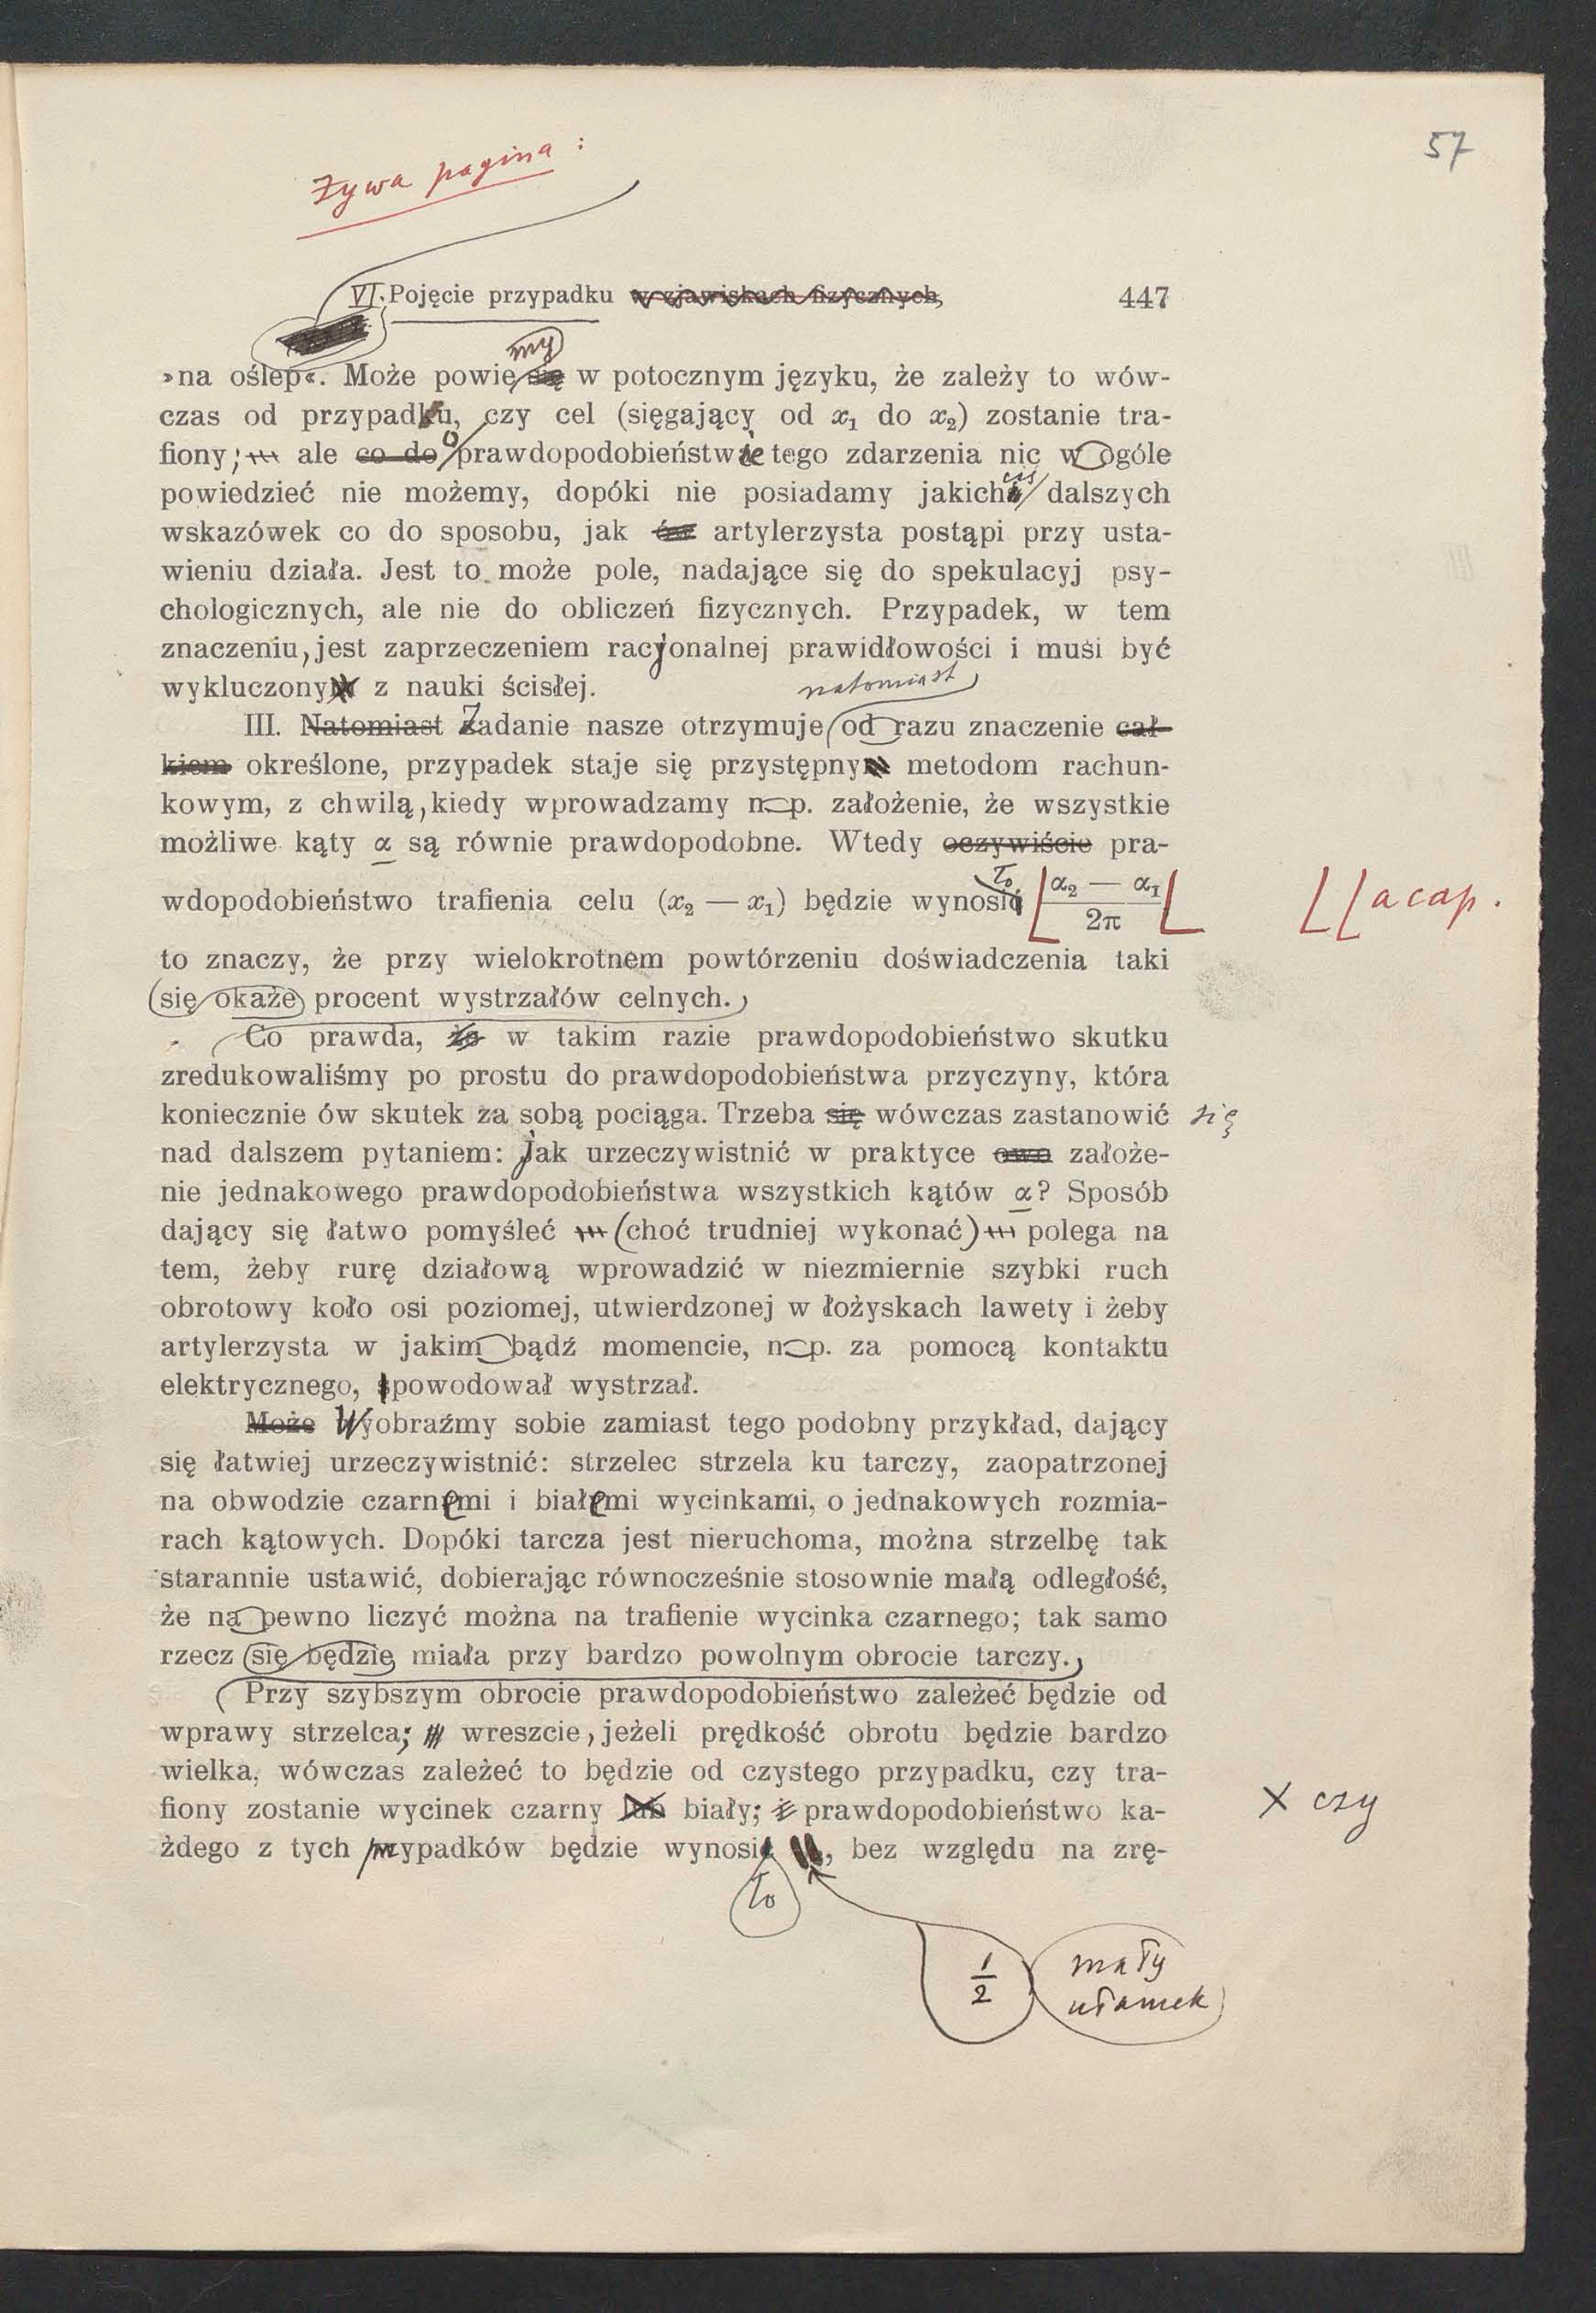 57
Żywa pagina:
VI. Pojęcie przypadku w zjawiskach fizycznych, 447
my
»na oślep«. Może powie się w potocznym języku, że zależy to wów-
czas od przypadku, czy cel (sięgający od x₁ do x₂) zostanie tra-
fiony; ale co do o prawdopodobieństwie tego zdarzenia nic w ogóle
powiedzieć nie możemy, dopóki nie posiadamy jakichś dalszych
wskazówek co do sposobu, jak artylerzysta postąpi przy usta-
wieniu działa. Jest to może pole, nadające się do spekulacyj psy-
chologicznych, ale nie do obliczeń fizycznych. Przypadek, w tem
znaczeniu, jest zaprzeczeniem racjonalnej prawidłowości i musi być
wykluczony z nauki ścisłej.
natomiast
III. Natomiast Zadanie nasze otrzymuje od razu znaczenie cał-
kiem określone, przypadek staje się przystępny metodom rachun-
kowym, z chwilą, kiedy wprowadzamy np. założenie, że wszystkie
możliwe kąty α są równie prawdopodobne. Wtedy oczywiście pra-
wdopodobieństwo trafienia celu (x₂ — x₁) będzie wynosić ło (α₂ — α₁)/2π a cap.
to znaczy, że przy wielokrotnem powtórzeniu doświadczenia taki
się okaże procent wystrzałów celnych.
Co prawda, że w takim razie prawdopodobieństwo skutku
zredukowaliśmy po prostu do prawdopodobieństwa przyczyny, która
koniecznie ów skutek za sobą pociąga. Trzeba się wówczas zastanowić się
nad dalszem pytaniem: jak urzeczywistnić w praktyce owo założe-
nie jednakowego prawdopodobieństwa wszystkich kątów α? Sposób
dający się łatwo pomyśleć (choć trudniej wykonać) polega na
tem, żeby rurę działową wprowadzić w niezmiernie szybki ruch
obrotowy koło osi poziomej, utwierdzonej w łożyskach lawety i żeby
artylerzysta w jakim bądź momencie, np. za pomocą kontaktu
elektrycznego, spowodował wystrzał.
Może Wyobraźmy sobie zamiast tego podobny przykład, dający
się łatwiej urzeczywistnić: strzelec strzela ku tarczy, zaopatrzonej
na obwodzie czarnemi i białemi wycinkami, o jednakowych rozmia-
rach kątowych. Dopóki tarcza jest nieruchoma, można strzelbę tak
starannie ustawić, dobierając równocześnie stosownie małą odległość,
że na pewno liczyć można na trafienie wycinka czarnego; tak samo
rzecz się będzie miała przy bardzo powolnym obrocie tarczy.
Przy szybszym obrocie prawdopodobieństwo zależeć będzie od
wprawy strzelca; wreszcie, jeżeli prędkość obrotu będzie bardzo
wielka, wówczas zależeć to będzie od czystego przypadku, czy tra-
fiony zostanie wycinek czarny lub biały; prawdopodobieństwo ka- X czy
żdego z tych przypadków będzie wynosi , bez względu na zrę-
ło
1/2 mały
ułamek